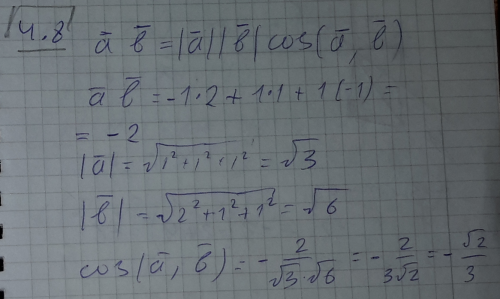 4.8
a̅ b̅ = |a̅| |b̅| cos(a̅, b̅)
a̅ b̅ = -1·2 + 1·1 + 1(-1) =
= -2
|a̅| = √(1² + 1² + 1²) = √3
|b̅| = √(2² + 1² + 1²) = √6
cos(a̅, b̅) = - 2/(√3·√6) = - 2/(3√2) = - √2/3